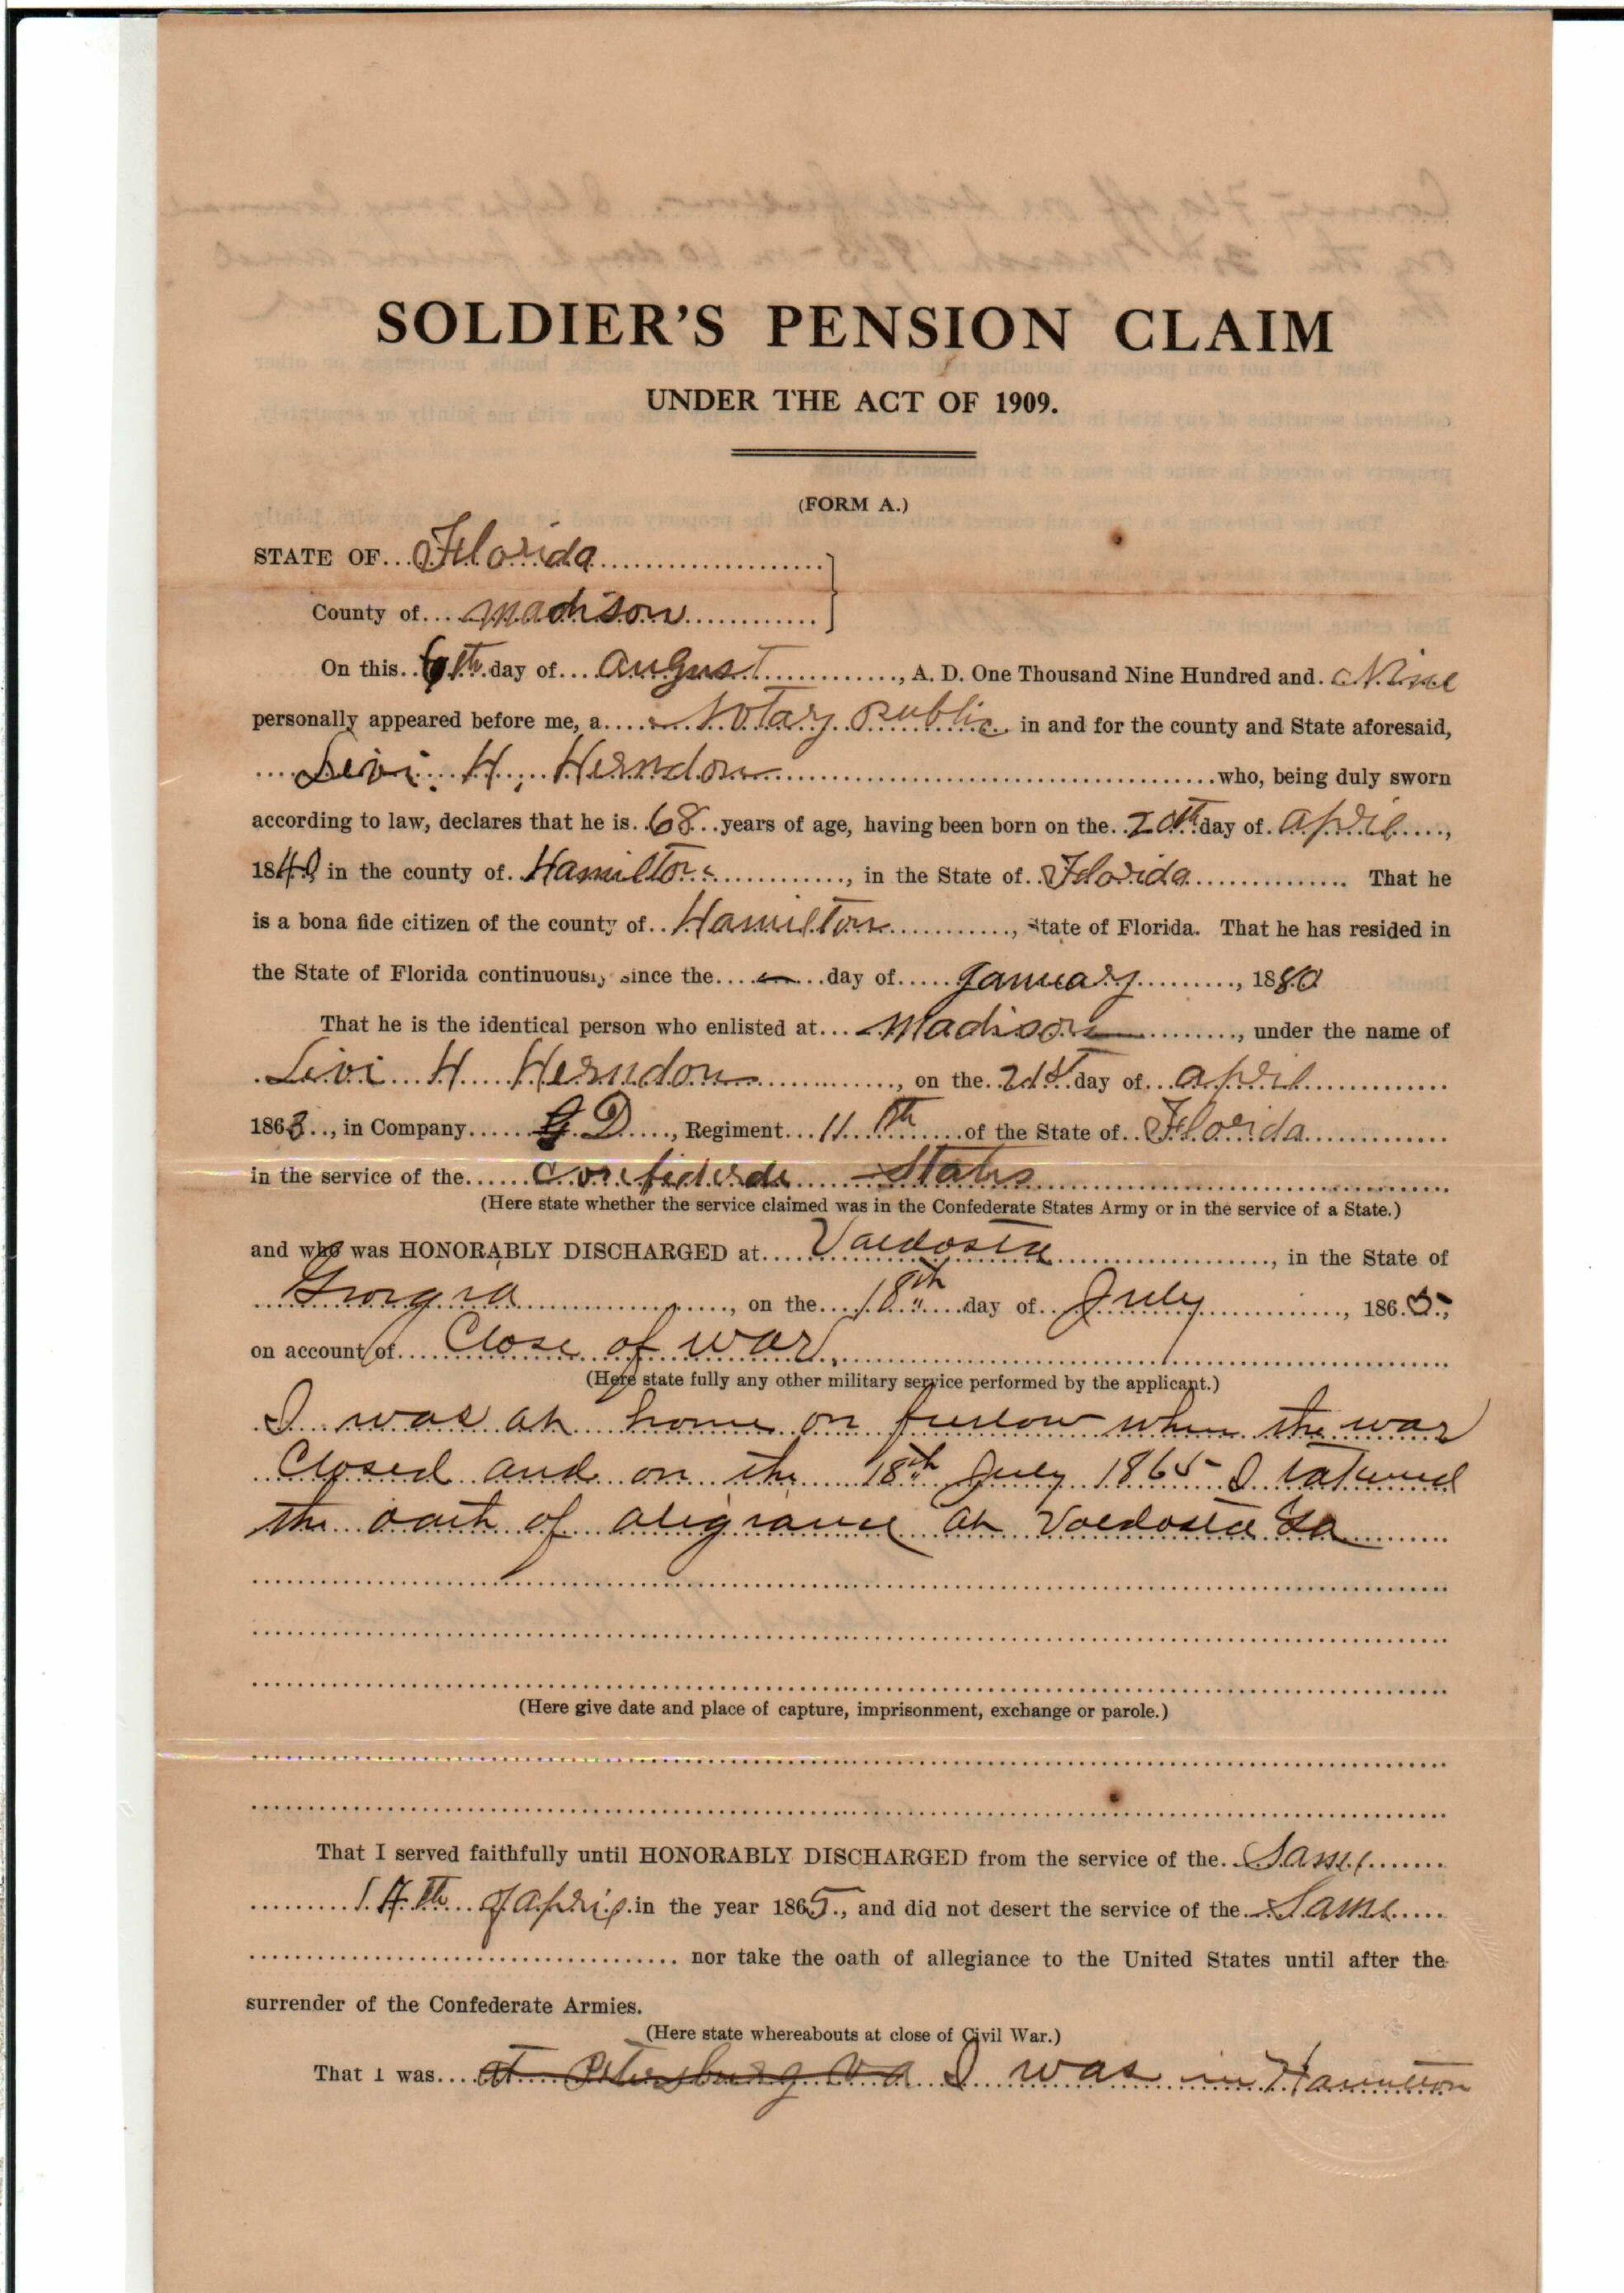 SOLDIER'S PENSION CLAIM
UNDER THE ACT OF 1909.
(FORM A.)
STATE OF Florida
County of Madison
On this 6th day of August, A. D. One Thousand Nine Hundred and Nine
personally appeared before me, a Notary Public in and for the county and State aforesaid,
Levi H. Herndon who, being duly sworn
according to law, declares that he is 68 years of age, having been born on the 20th day of April,
184 in the county of Hamilton, in the State of Florida. That he
is a bona fide citizen of the county of Hamilton, State of Florida. That he has resided in
the State of Florida continuously since the day of January, 1880
That he is the identical person who enlisted at Madison, under the name of
Levi H Herndon, on the 21st day of April
1863, in Company D, Regiment 11th of the State of Florida
in the service of the Confederate States
(Here state whether the service claimed was in the Confederate States Army or in the service of a State.)
and who was HONORABLY DISCHARGED at Valdosta, in the State of
Georgia, on the 18th day of July, 1865,
on account of Close of war.
(Here state fully any other military service performed by the applicant.)
I was at home on furlow when the war
Closed and on the 18th July 1865 I
the oath of aligiance at Valdosta Ga
(Here give date and place of capture, imprisonment, exchange or parole.)
That I served faithfully until HONORABLY DISCHARGED from the service of the Same
of April in the year 1865, and did not desert the service of the Same
nor take the oath of allegiance to the United States until after the
surrender of the Confederate Armies.
(Here state whereabouts at close of Civil War.)
That I was at Petersburg Va I was in Hamilton